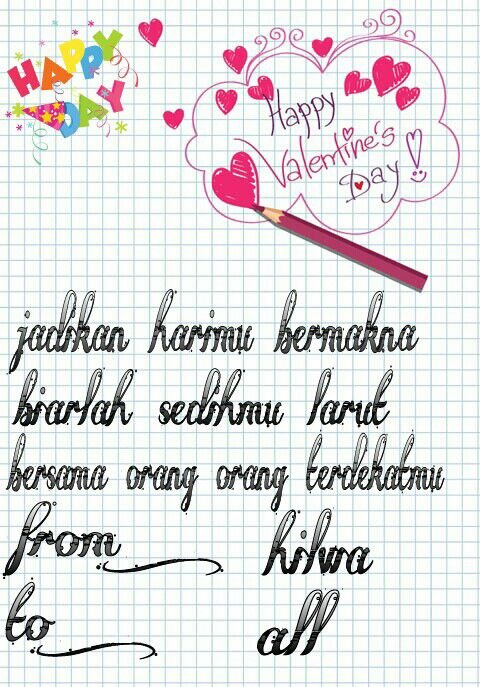 HAPPY
DAY
Happy
Valentine's
Day!
jadikan harimu bermakna
biarlah sedihmu larut
bersama orang orang terdekatmu
from hilwa
to all